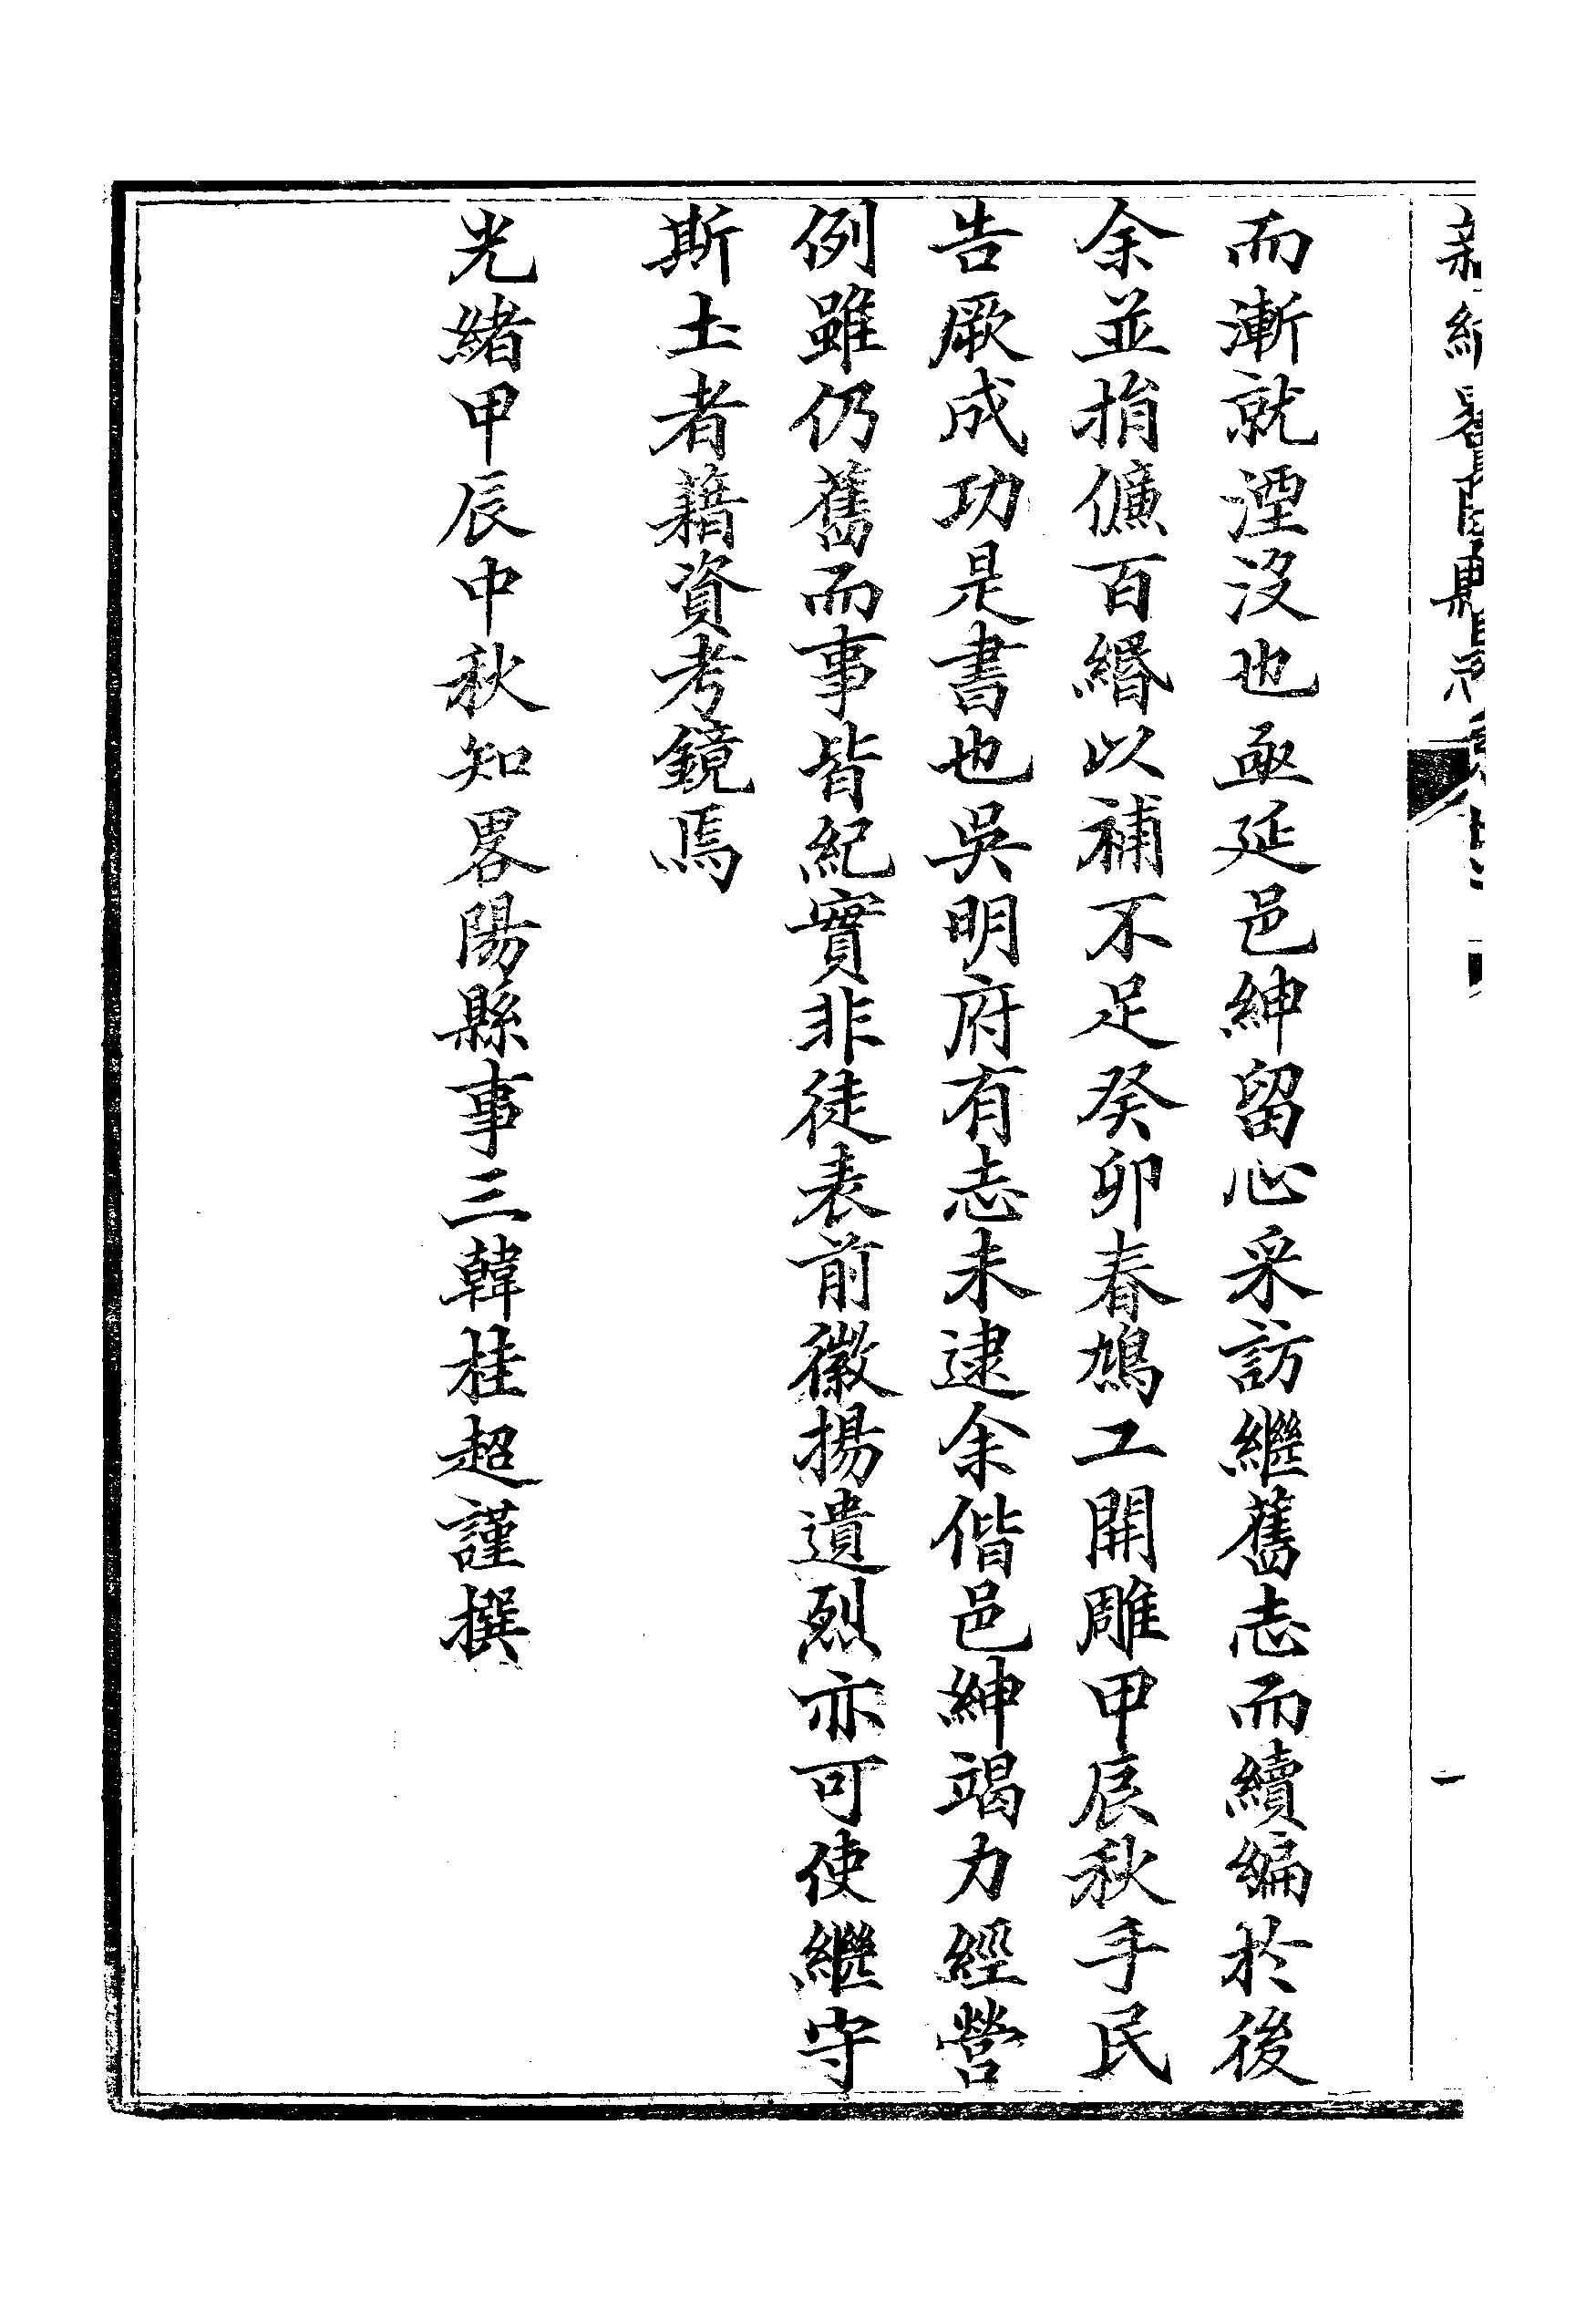 而漸就湮沒也亟延邑紳留心采訪繼舊志而續編於後
余並捐儣百緡以補不足癸卯春鳩工開雕甲辰秋手民
告厥成功是書也吳明府有志未逮余偕邑紳竭力經營
例雖仍舊而事皆紀實非徒表前徽揚遺烈亦可使繼守
斯土者藉資考鏡焉
光緒甲辰中秋知畧陽縣事三韓桂超謹撰
一